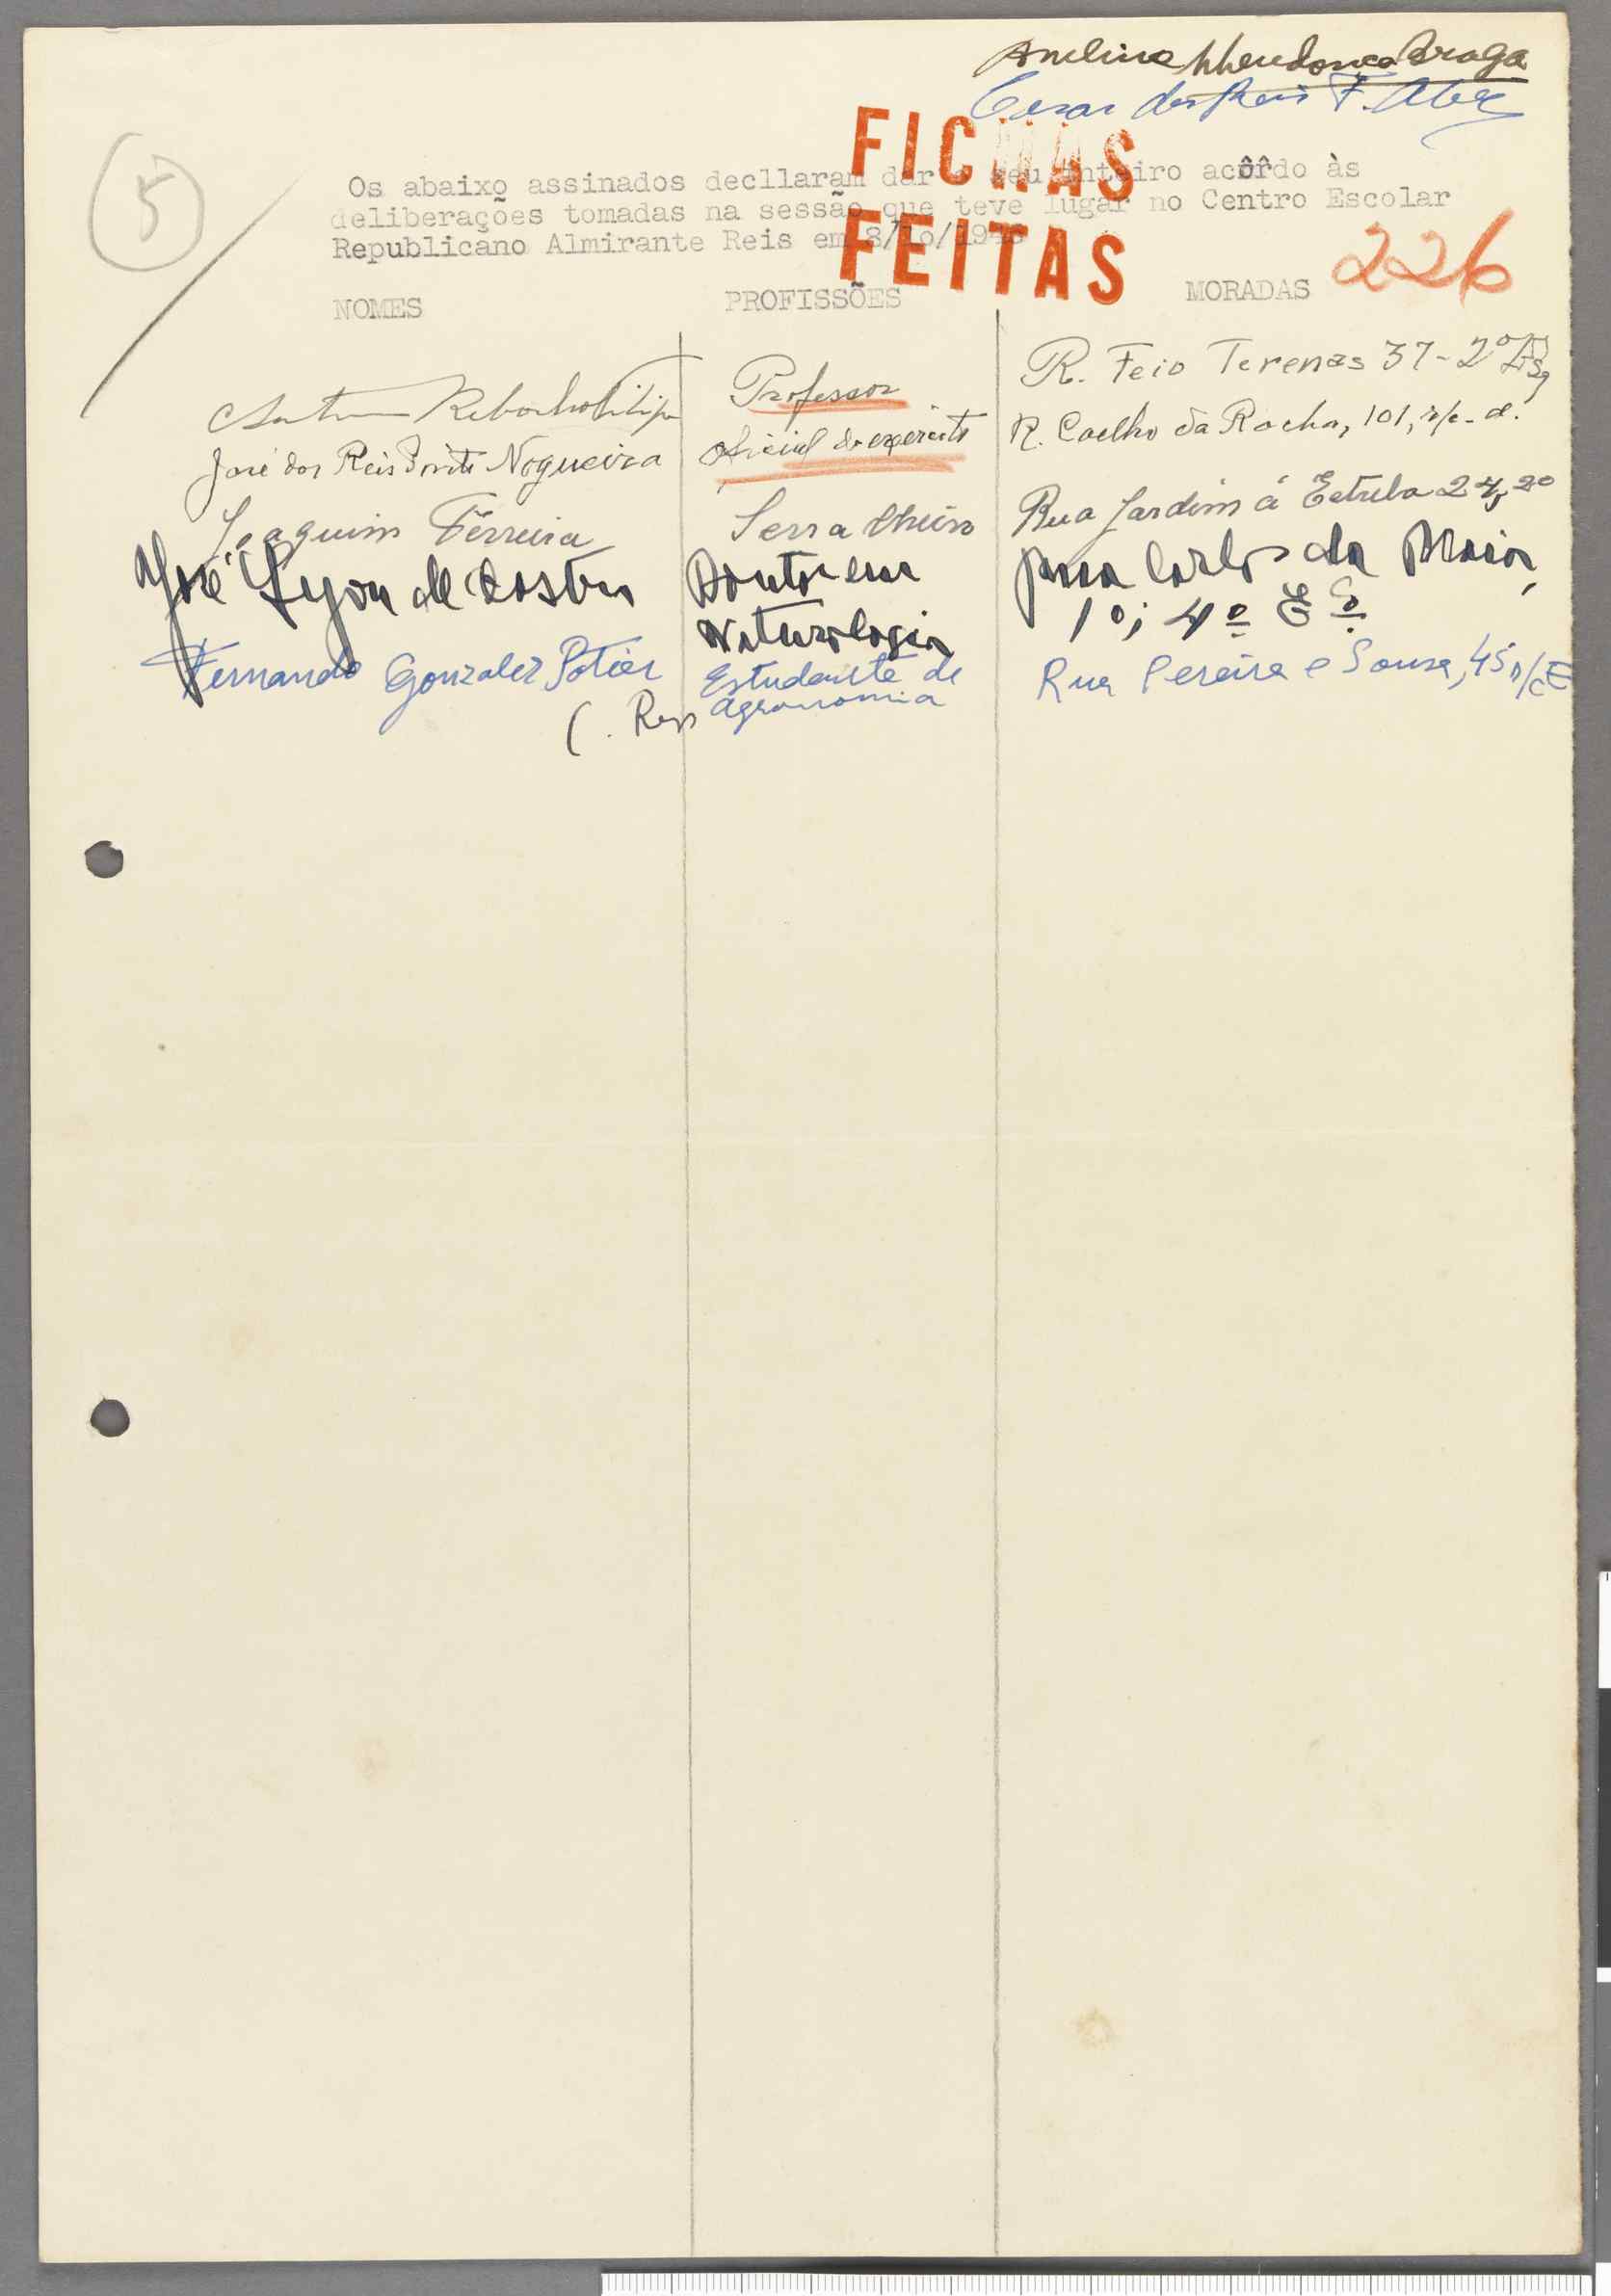 Avelino Mendonça Braga
Cesar dos Reis F.
5
FICHAS
FEITAS
Os abaixo assinados decllaram dar seu inteiro acôrdo às
deliberações tomadas na sessão que teve lugar no Centro Escolar
Republicano Almirante Reis em 8/10/1945
226
NOMES PROFISSÕES MORADAS
Professor R. Feio Terenas 37-2º Esq
José dos Reis Nogueira Oficial do exercito R. Coelho da Rocha, 101, r/c-d.
Joaquim Ferreira Serralheiro Rua Jardim á Estrela 24, 2º
José Lyon de Castro Doutor em Rua Carlos da Maia,
Naturologia 1º; 4º Eº
Fernando Gonzalez Potier Estudante de Rua Pereira e Sousa, 45 r/c E
agronomia